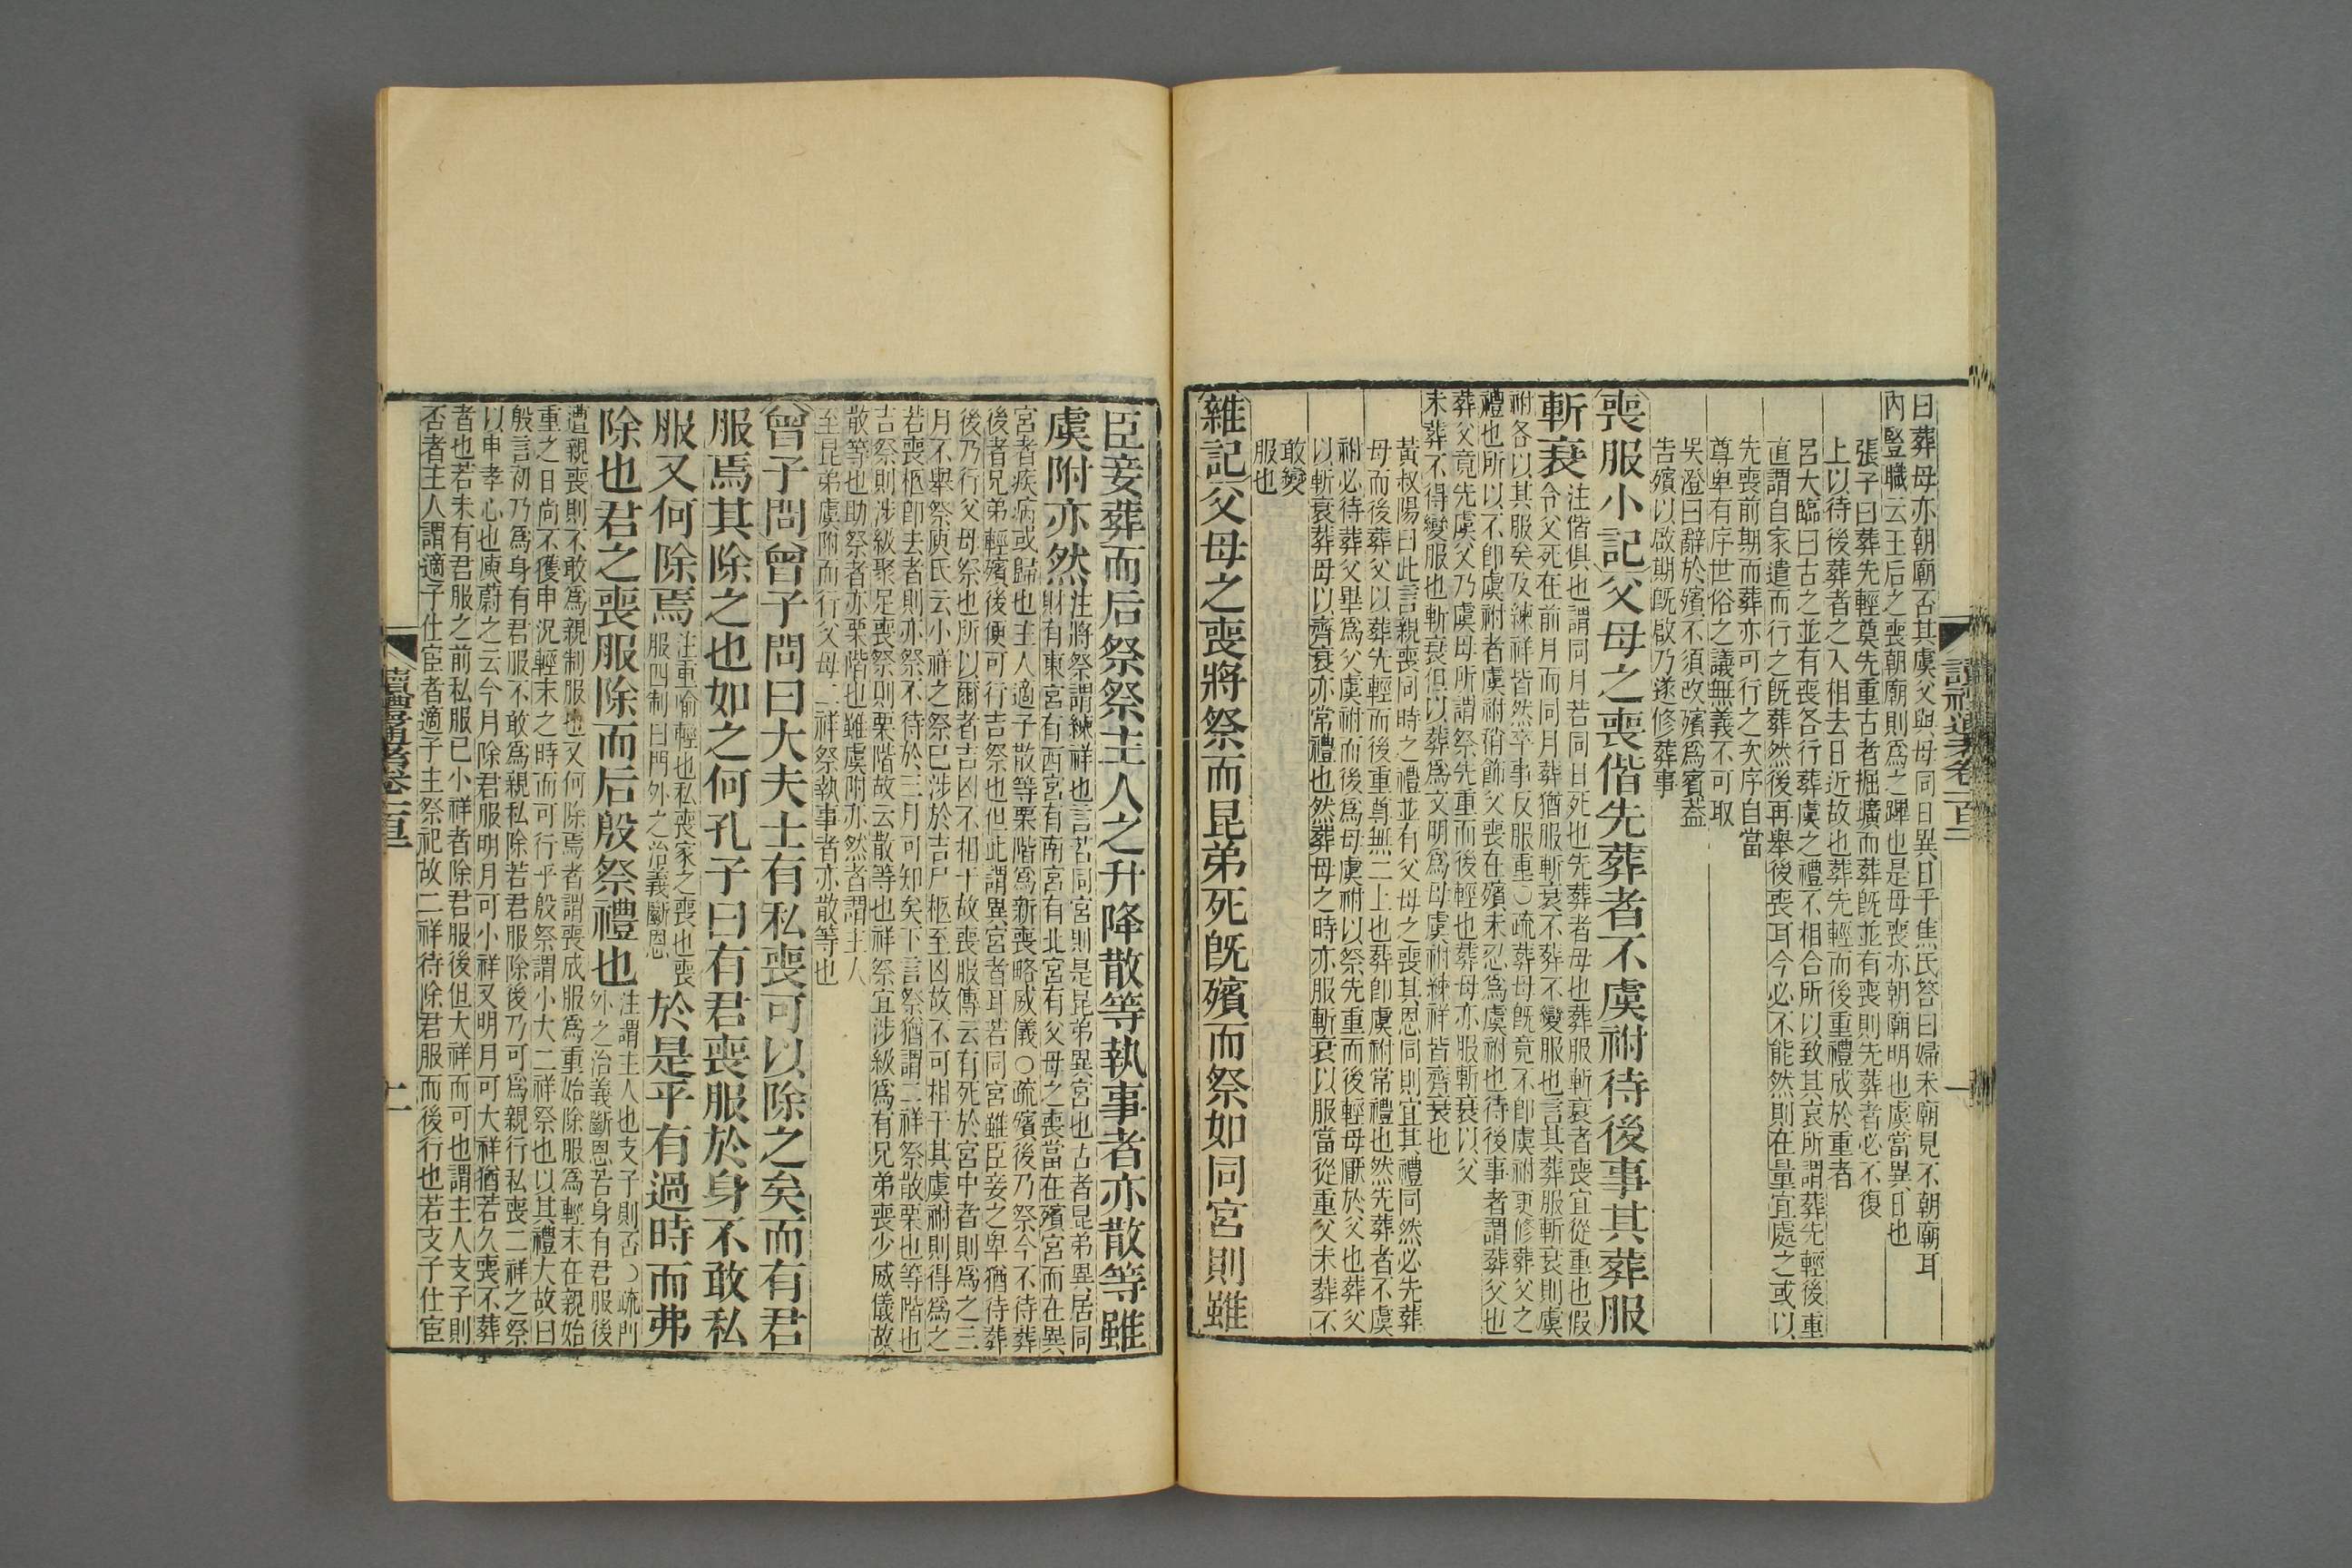 讀禮通考卷一百二
曰葬母亦朝廟否其虞父與母同日異日乎焦氏答曰婦未廟見不朝廟耳
內豎職云王后之喪朝廟則爲之蹕也是母喪亦朝廟明也虞當異日也
張子曰葬先輕奠先重古者掘壙而葬旣並有喪則先葬者必不復
上以待後葬者之入相去日近故也葬先輕而後重禮成於重者
呂大臨曰古之並有喪各行葬虞之禮不相合所以致其哀所謂葬先輕後重
直謂自家遣而行之旣葬然後再舉後喪耳今必不能然則在量宜處之或以
先喪前期而葬亦可行之次序自當
尊卑有序世俗之議無義不可取
吳澄曰辭於殯不須改殯爲賓葢
告殯以啟期旣啟乃遂修葬事
喪服小記父母之喪偕先葬者不虞祔待後事其葬服
斬衰
注偕俱也謂同月若同日死也先葬者母也葬服斬衰者喪宜從重也假
令父死在前月而同月葬猶服斬衰不葬不變服也言其葬服斬衰則虞
祔各以其服矣及練祥皆然卒事反服重○疏葬母旣竟不卽虞祔更修葬父之
禮也所以不卽虞祔者虞祔稍飾父喪在殯未忍爲虞祔也待後事者謂葬父也
葬父竟先虞父乃虞母所謂祭先重而後輕也葬母亦服斬衰以父
未葬不得變服也斬衰但以葬爲文明爲母虞祔練祥皆齊衰也
黃叔陽曰此言親喪同時之禮並有父母之喪其恩同則宜其禮同然必先葬
母而後葬父以葬先輕而後重尊無二上也葬卽虞祔常禮也然先葬者不虞
祔必待葬父畢爲父虞祔而後爲母虞祔以祭先重而後輕母厭於父也葬父
以斬衰葬母以齊衰亦常禮也然葬母之時亦服斬衰以服當從重父未葬不
敢變
服也
雜記父母之喪將祭而昆弟死旣殯而祭如同宮則雖
臣妾葬而后祭祭主人之升降散等執事者亦散等雖
虞附亦然
注將祭謂練祥也言若同宮則是昆弟異宮也古者昆弟異居同
財有東宮有西宮有南宮有北宮有父母之喪當在殯宮而在異
宮者疾病或歸也主人適子散等栗階爲新喪略威儀○疏殯後乃祭今不待葬
後者兄弟輕殯後便可行吉祭也但此謂異宮者耳若同宮雖臣妾之卑猶待葬
後乃行父母祭也所以爾者吉凶不相干故喪服傳云有死於宮中者則爲之三
月不舉祭庾氏云小祥之祭已涉於吉尸柩至凶故不可相干其虞祔則得爲之
若喪柩卽去者則亦祭不待於三月可知矣下言祭猶謂二祥祭散栗也等階也
吉祭則涉級聚足喪祭則栗階故云散等也祥祭宜涉級爲有兄弟喪少威儀故
散等也助祭者亦栗階也雖虞附亦然者謂主人
至昆弟虞附而行父母二祥祭執事者亦散等也
曾子問曾子問曰大夫士有私喪可以除之矣而有君
服焉其除之也如之何孔子曰有君喪服於身不敢私
服又何除焉
注重喻輕也私喪家之喪也喪
服四制曰門外之治義斷恩
於是乎有過時而弗
除也君之喪服除而后殷祭禮也
注謂主人也支子則否○疏門
外之治義斷恩若身有君服後
遭親喪則不敢爲親制服也又何除焉者謂喪成服爲重始除服爲輕末在親始
重之日尚不獲申況輕末之時而可行乎殷祭謂小大二祥祭也以其禮大故曰
殷言初乃爲身有君服不敢爲親私除若君服除後乃可爲親行私喪二祥之祭
以申孝心也庾蔚之云今月除君服明月可小祥又明月可大祥猶若久喪不葬
者也若未有君服之前私服已小祥者除君服後但大祥而可也謂主人支子則
否者主人謂適子仕宦者適子主祭祀故二祥待除君服而後行也若支子仕宦
讀禮通考卷一百二
十一